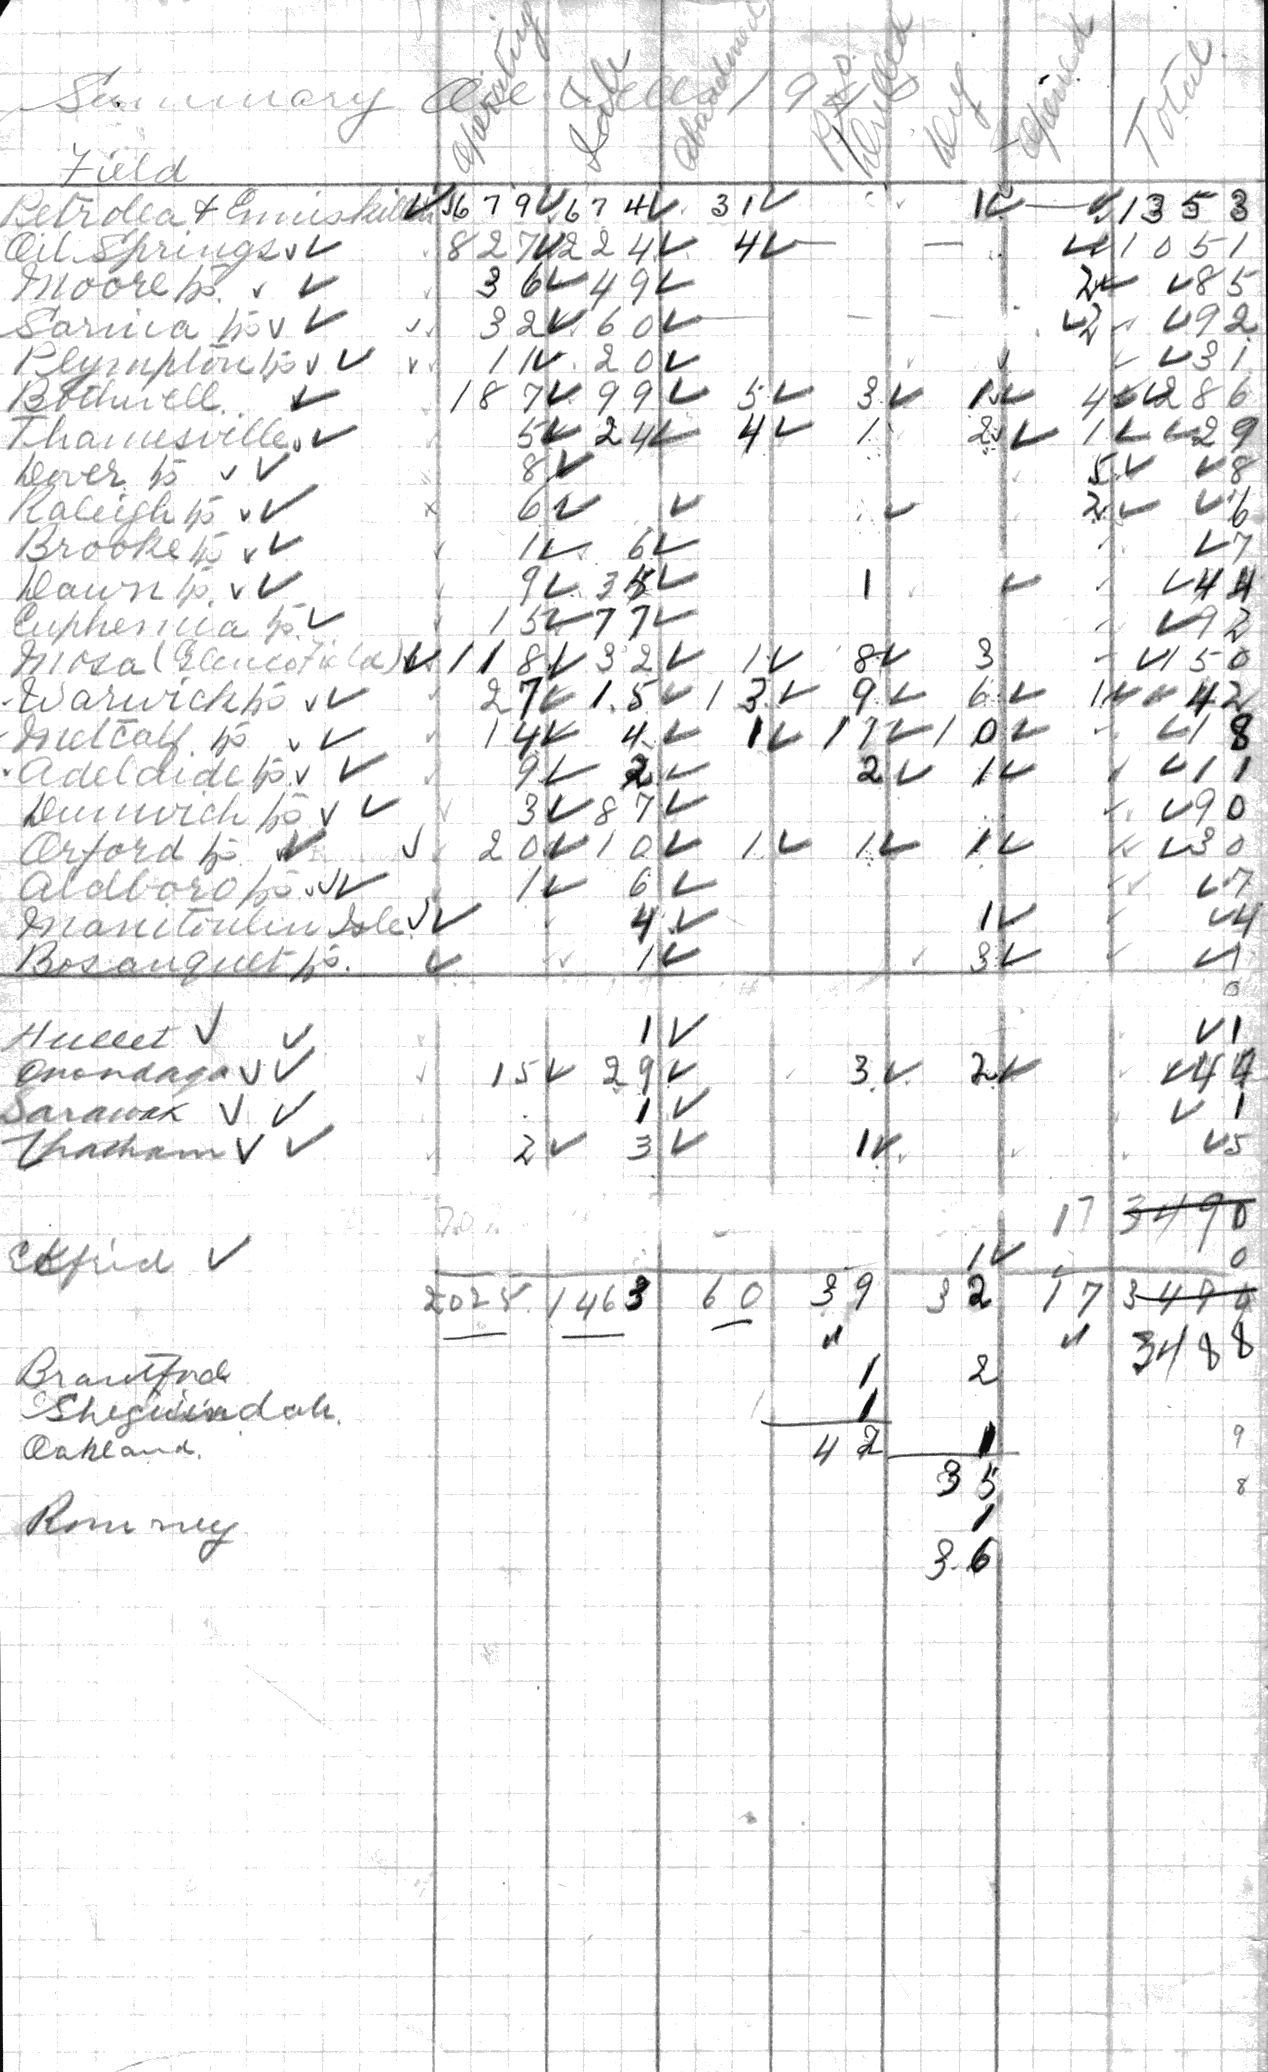 Operating Idle Abandoned No. Drilled Dry Opened Total
Summary Oil Wells
Field
Petrolea & Enniskillen ✓ 679 ✓ 674 ✓ 31 ✓ 1 ✓ — ✓ 1353
Oil Springs ✓✓ 827 ✓ 224 ✓ 4 ✓ — — ✓ 1051
Moore tp. ✓ ✓ 36 ✓ 49 ✓ 2 ✓ ✓ 85
Sarnia tp ✓ ✓ 32 ✓ 60 ✓ — — ✓ 2 ✓ 92
Plympton tp ✓ ✓ 11 ✓ 20 ✓ ✓ 31
Bothwell ✓ 187 ✓ 99 ✓ 5 ✓ 3 ✓ 1 ✓ 4 ✓ ✓ 286
Thamesville ✓✓ 5 ✓ 24 ✓ 4 ✓ 1 2 ✓ 1 ✓ ✓ 29
Dover tp ✓ ✓ 8 ✓ 5 ✓ ✓ 8
Raleigh tp ✓✓ 6 ✓ ✓ ✓ 2 ✓ ✓ 6
Brooke tp ✓✓ 1 ✓ 6 ✓ ✓ 7
Dawn tp. ✓✓ 9 ✓ 35 ✓ 1 ✓ ✓ 44
Euphemia tp. ✓ 15 ✓ 77 ✓ ✓ 92
Mosa (Glencoe Field) ✓ 118 ✓ 32 ✓ 1 ✓ 8 ✓ 3 ✓ 150
Warwick tp ✓✓ 27 ✓ 15 ✓ 13 ✓ 9 ✓ 6 ✓ 1 ✓ ✓ 42
Metcalf tp ✓✓ 14 ✓ 4 ✓ 1 ✓ 17 ✓ 10 ✓ ✓ 18
Adelaide tp ✓ ✓ 9 ✓ 2 ✓ 2 ✓ 1 ✓ ✓ 11
Dunwich tp ✓ ✓ 3 ✓ 87 ✓ ✓ 90
Orford tp ✓ ✓ 20 ✓ 10 ✓ 1 ✓ 1 ✓ 1 ✓ ✓ 30
Aldboro tp ✓✓ 1 ✓ 6 ✓ ✓ 7
Manitoulin Isle ✓✓ 4 ✓ 1 ✓ ✓ 4
Bosanquet tp. ✓ 1 ✓ 3 ✓ ✓ 1
0
Hullet ✓ ✓ 1 ✓ ✓ 1
Onondaga ✓✓ 15 ✓ 29 ✓ 3 ✓ 2 ✓ ✓ 44
Sarawak ✓ ✓ 1 ✓ ✓ 1
Chatham ✓ ✓ 2 ✓ 3 ✓ 1 ✓ ✓ 5
17 3490
Ekfrid ✓ 1 ✓ 0
2025 1463 60 39 32 17
3488
Brantford 1 2
Sheguindah. 1
Oakland. 42 1 9
35 8
Romney 1
36